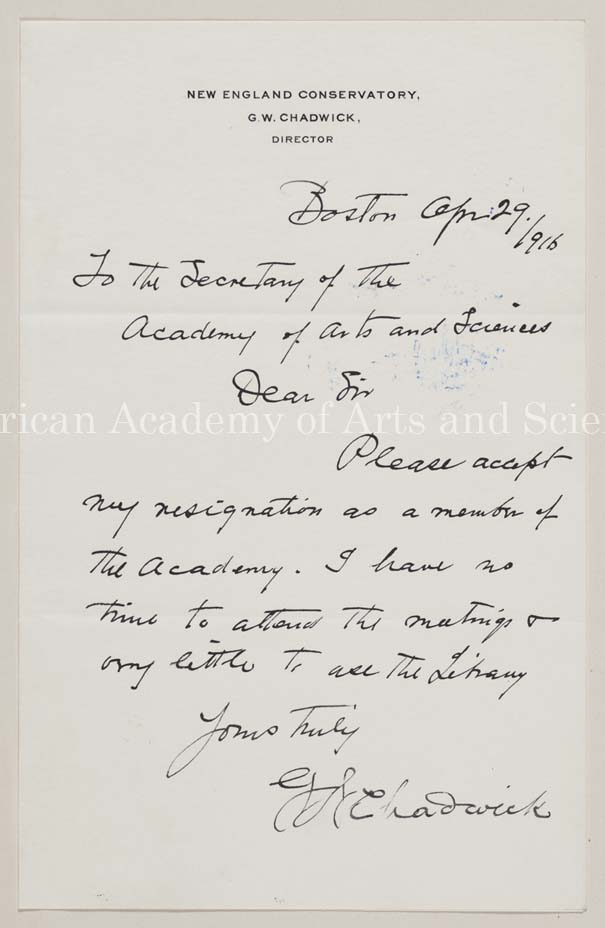 NEW ENGLAND CONSERVATORY,
G.W. CHADWICK,
DIRECTOR
Boston Apr. 29.
1916
To the Secretary of the
Academy of Arts and Sciences
Dear Sir
rican Academy of Arts and Scien
Please accept
my resignation as a member of
the Academy. I have no
time to attend the meetings &
very little to use the Library
Yours truly
G W Chadwick